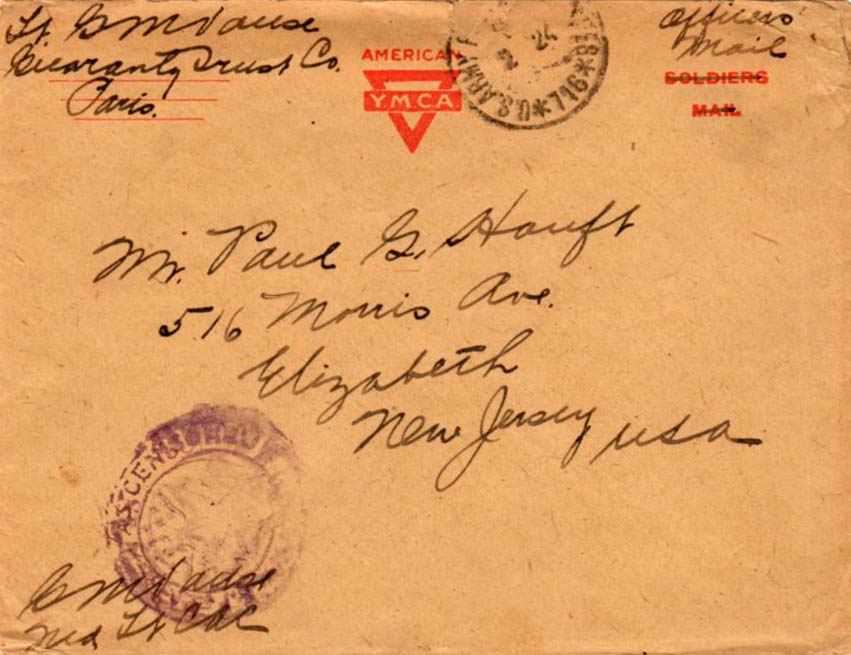 Lt G M Vause
Guaranty Trust Co.
Paris.
AMERICAN
Y.M.C.A
U.S. ARMY
*716*
24
Officers'
Mail
SOLDIERS
MAIL
Mr. Paul G. Hauft
516 Morris Ave.
Elizabeth
New Jersey USA
CENSORED
G M Vause
2nd Lt CAC